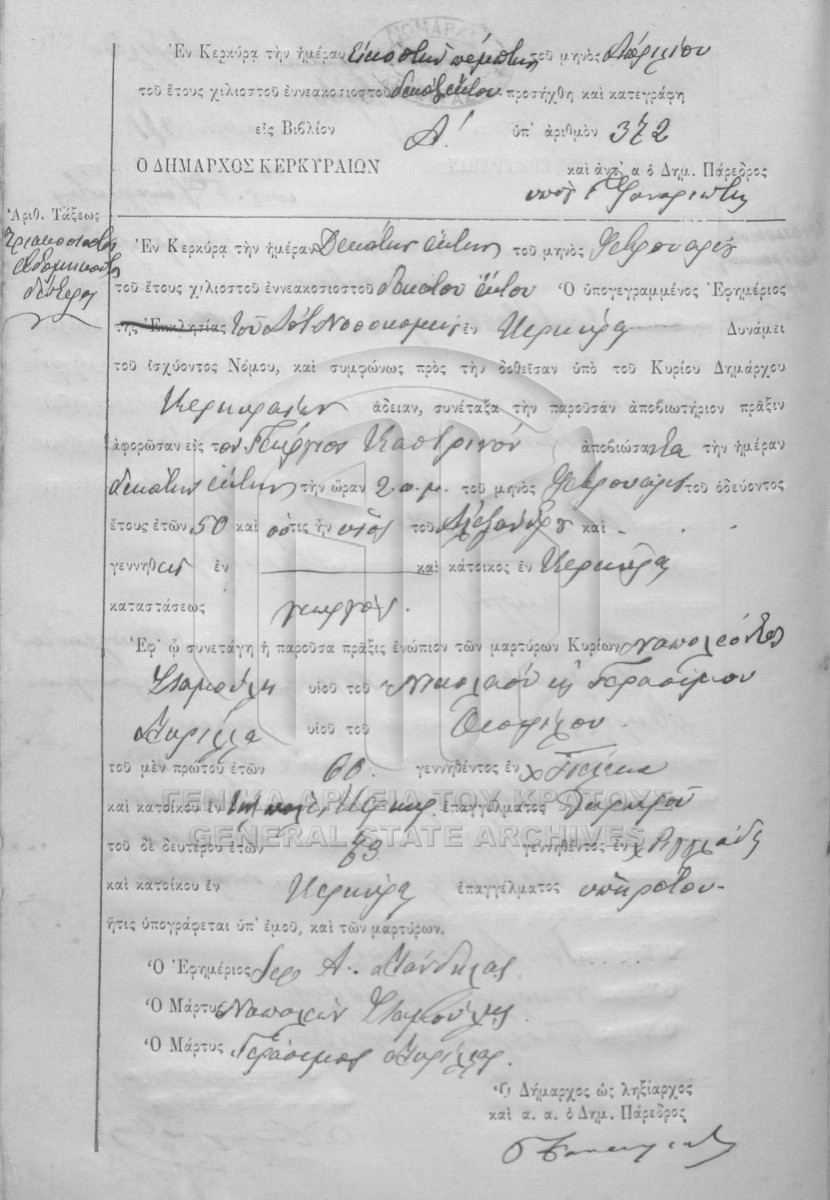 Ἐν Κερκύρᾳ τὴν ἡμέραν Εἰκοστὴν πέμπτην τοῦ μηνὸς Ἀπριλίου
τοῦ ἔτους χιλιοστοῦ ἐννεακοσιοστοῦ δεκάτου ἕκτου προσήχθη καὶ κατεγράφη
εἰς Βιβλίον Α! ὑπ' ἀριθμὸν 372
Ο ΔΗΜΑΡΧΟΣ ΚΕΡΚΥΡΑΙΩΝ καὶ ἀντ' α ὁ Δημ. Πάρεδρος
Ἀριθ. Τάξεως
Τριακοσιοστὸς
ἑβδομηκοστὸς
δεύτερος
Ἐν Κερκύρᾳ τὴν ἡμέραν Δεκάτην ἕκτην τοῦ μηνὸς Φεβρουαρίου
τοῦ ἔτους χιλιοστοῦ ἐννεακοσιοστοῦ δεκάτου ἕκτου Ὁ ὑπογεγραμμένος Ἐφημέριος
τῆς Ἐκκλησίας τοῦ Νοσοκομείου ἐν Κερκύρᾳ Δυνάμει
τοῦ ἰσχύοντος Νόμου, καὶ συμφώνως πρὸς τὴν δοθεῖσαν ὑπὸ τοῦ Κυρίου Δημάρχου
Κερκυραίων ἄδειαν, συνέταξα τὴν παροῦσαν ἀποβιωτήριον πρᾶξιν
ἀφορῶσαν εἰς τὸν Γεώργιον Καστρινὸν ἀποβιώσαντα τὴν ἡμέραν
δεκάτην ἕκτην τὴν ὥραν 2 π.μ. τοῦ μηνὸς Φεβρουαρίου τοῦ ὁδεύοντος
ἔτους ἐτῶν 50 καὶ ὅστις ἦν υἱὸς τοῦ Ἀλεξάνδρου καὶ
γεννηθεὶς ἐν καὶ κάτοικος ἐν Κερκύρᾳ
καταστάσεως γεωργός.
Ἐφ' ᾧ συνετάγη ἡ παροῦσα πρᾶξις ἐνώπιον τῶν μαρτύρων Κυρίων Ναπολέοντος
Σταμούλη υἱοῦ τοῦ Νικολάου κ Γερασίμου
υἱοῦ τοῦ Θεοφίλου.
τοῦ μὲν πρώτου ἐτῶν 60. γεννηθέντος ἐν
καὶ κατοίκου ἐν Κερκυρ. ἐπαγγέλματος
τοῦ δὲ δευτέρου ἐτῶν γεννηθέντος ἐν
καὶ κατοίκου ἐν Κερκύρᾳ ἐπαγγέλματος ὑπηρέτου
ἥτις ὑπογράφεται ὑπ' ἐμοῦ, καὶ τῶν μαρτύρων.
Ὁ Ἐφημέριος
Ὁ Μάρτυς Ναπολέων Σταμούλης
Ὁ Μάρτυς Γεράσιμος
Ὁ Δήμαρχος ὡς ληξίαρχος
καὶ α. α. ὁ Δημ. Πάρεδρος
ΓΕΝΙΚΑ ΑΡΧΕΙΑ ΤΟΥ ΚΡΑΤΟΥΣ
GENERAL STATE ARCHIVES